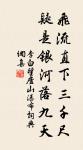 飛流直下三千尺
疑是銀河落九天
李白望廬山瀑布詞典
網集